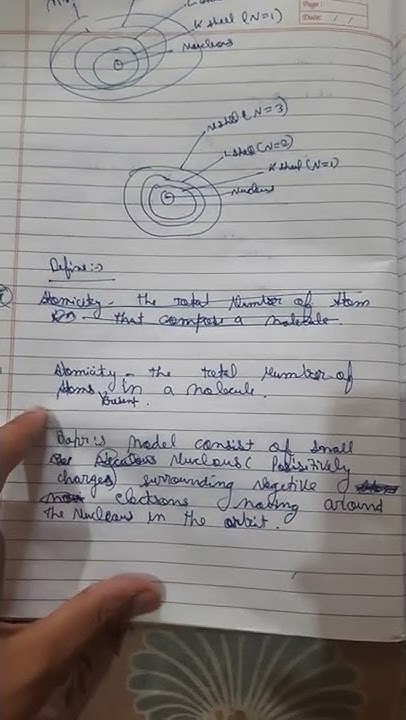 Page:
Date: / /
K shell (N=1)
Nucleous
M shell (N=3)
L shell (N=2)
K shell (N=1)
Nucleus
Define :→
Atomicity - the total Number of Atom
that compose a molecule.
Atomicity - the total Number of
Atoms in a molecule.
Present.
Bohr's model consist of small
Nucleous (Positively
charges) surrounding negetive
electrons moving around
the Nucleus in the orbit.